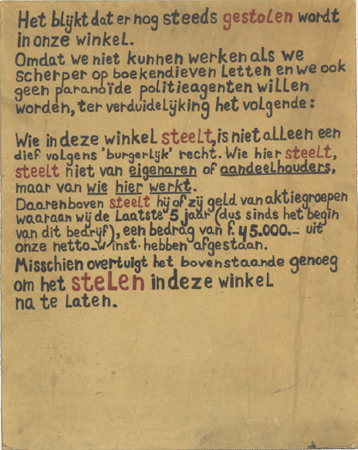 Het blijkt dat er nog steeds gestolen wordt
in onze winkel.
Omdat we niet kunnen werken als we
scherper op boekendieven Letten en we ook
geen paranoïde politieagenten willen
worden, ter verduidelijking het volgende:
Wie in deze winkel steelt, is niet alleen een
dief volgens 'burgerlijk' recht. Wie hier steelt,
steelt niet van eigenaren of aandeelhouders,
maar van wie hier werkt.
Daarenboven steelt hij of zij geld van aktiegroepen
waaraan wij de Laatste 5 jaar (dus sinds het begin
van dit bedrijf), een bedrag van f. 45.000.- uit
onze netto-winst hebben afgestaan.
Misschien overtuigt het bovenstaande genoeg
om het stelen in deze winkel
na te Laten.